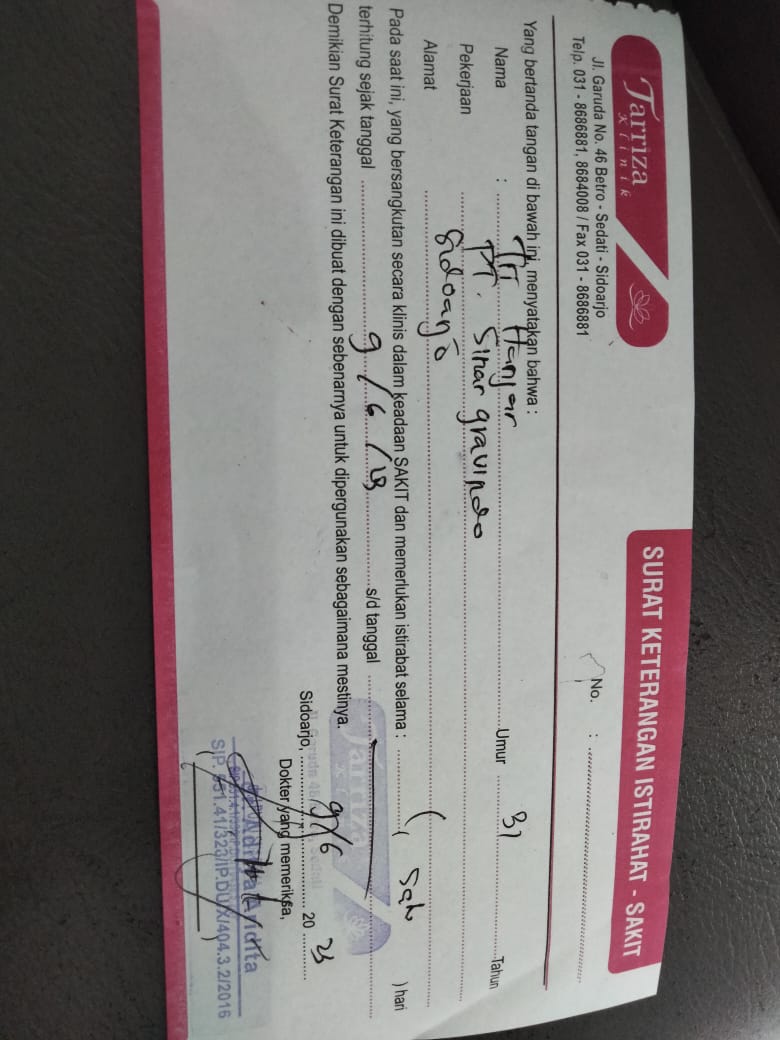 Tarriza
Klinik
SURAT KETERANGAN ISTIRAHAT - SAKIT
Jl. Garuda No. 46 Betro - Sedati - Sidoarjo
Telp. 031 - 8686881, 8684008 / Fax 031 - 8686881
No. :
Yang bertanda tangan di bawah ini, menyatakan bahwa :
Nama : Tri Hanjar Umur 31 Tahun
Pekerjaan PT. Sinar gravindo
Alamat Sidoarjo
Pada saat ini, yang bersangkutan secara klinis dalam keadaan SAKIT dan memerlukan istirabat selama : 1 ( satu ) hari
terhitung sejak tanggal 9/6/23 s/d tanggal
Demikian Surat Keterangan ini dibuat dengan sebenarnya untuk dipergunakan sebagaimana mestinya.
Tarriza
Sidoarjo, 9/6 20 23
Dokter yang memeriksa,
Ardita
SIP. 551.41/323/IP.DU/X/404.3.2/2016